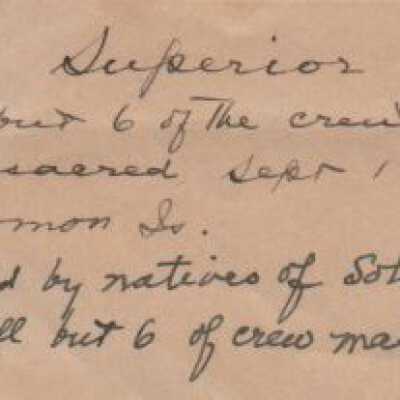 Superior
but 6 of The crew
sacred Sept 1
mon Is.
d by natives of Sol
ll but 6 of crew ma